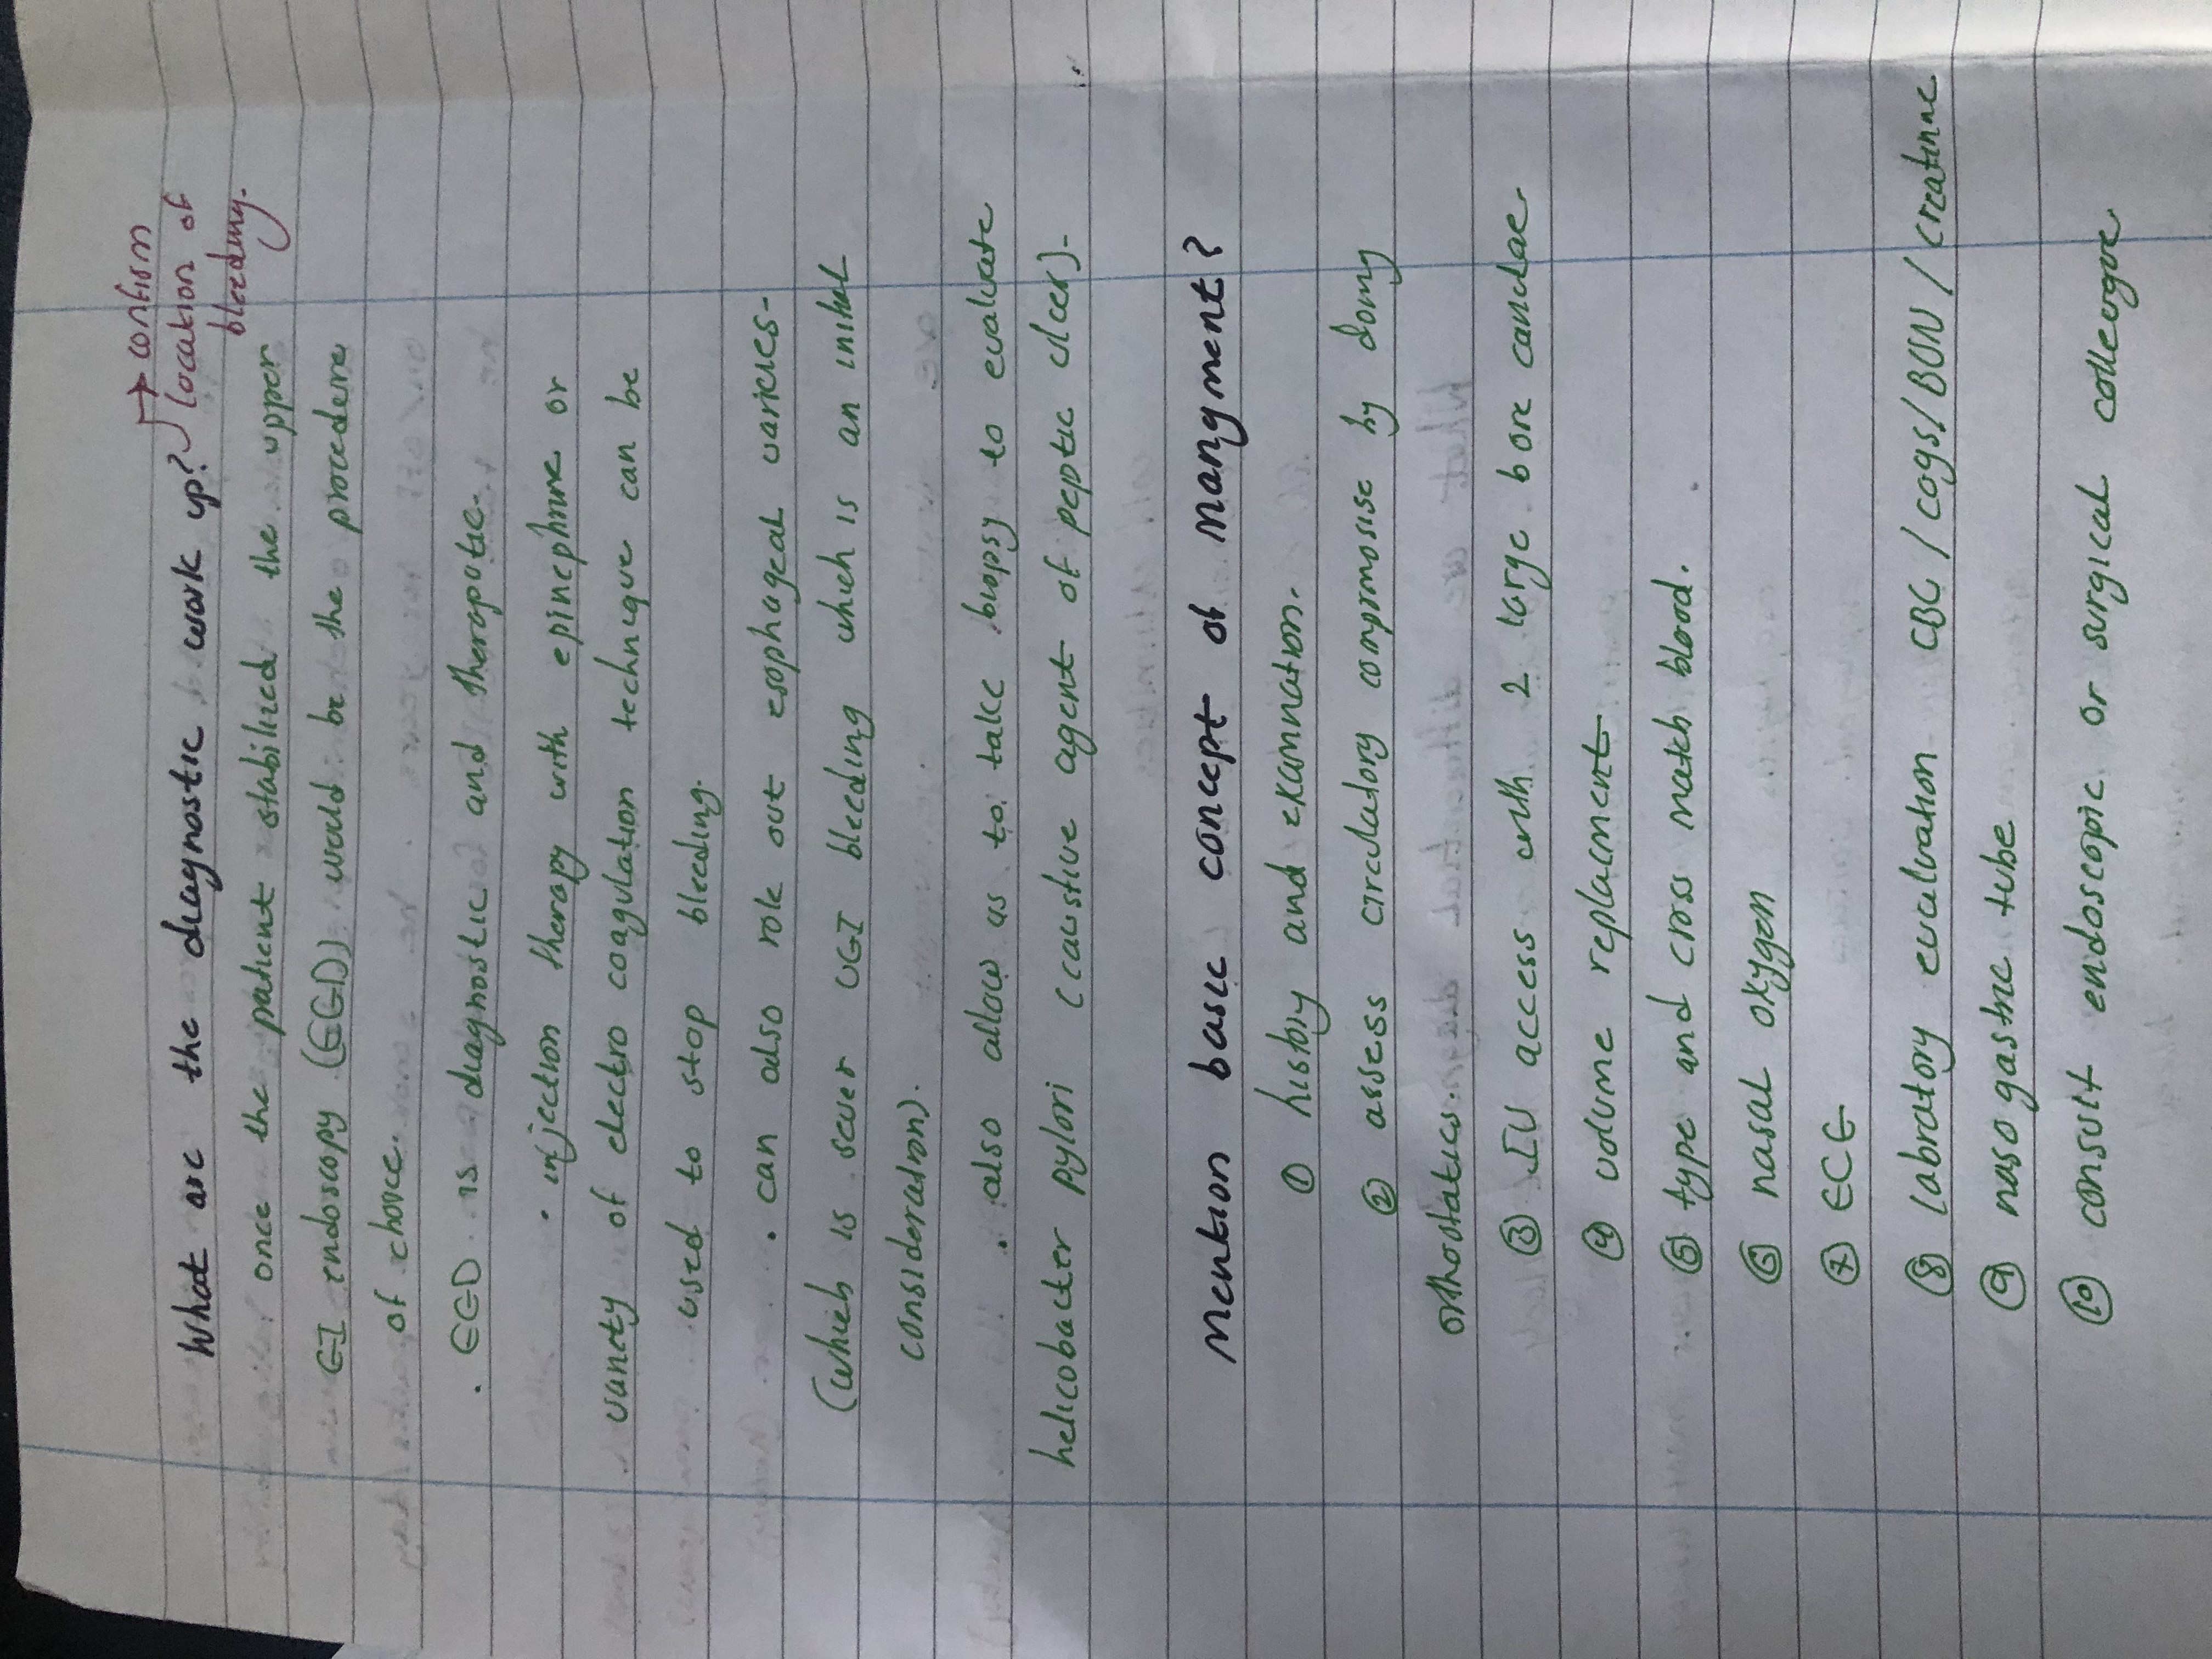 What are the diagnostic work up? → confirm
location of
bleeding.
once the patient stabilized the upper
GI endoscopy (EGD) would be the procedure
of choice.
. EGD is diagnostic and theraputic.
. injection therapy with epinephrine or
variety of electro coagulation technique can be
used to stop bleeding.
. can also role out esophageal varices-
(which is sever UGI bleeding which is an initial
consideration).
. also allow us to take biopsy to evaluate
helicobacter pylori (caustive agent of peptic ulcer).
Mention basic concept of mangment?
① history and examination.
② assess circulatory compromise by doing
orthostatics.
③ IV access with 2 large bore canulae.
④ volume replacment
⑤ type and cross match blood.
⑥ nasal oxygen
⑦ ECG
⑧ labratory evaluation CBC / cogs / BUN / creatinne
⑨ naso gastric tube
⑩ consult endoscopic or surgical colleogue